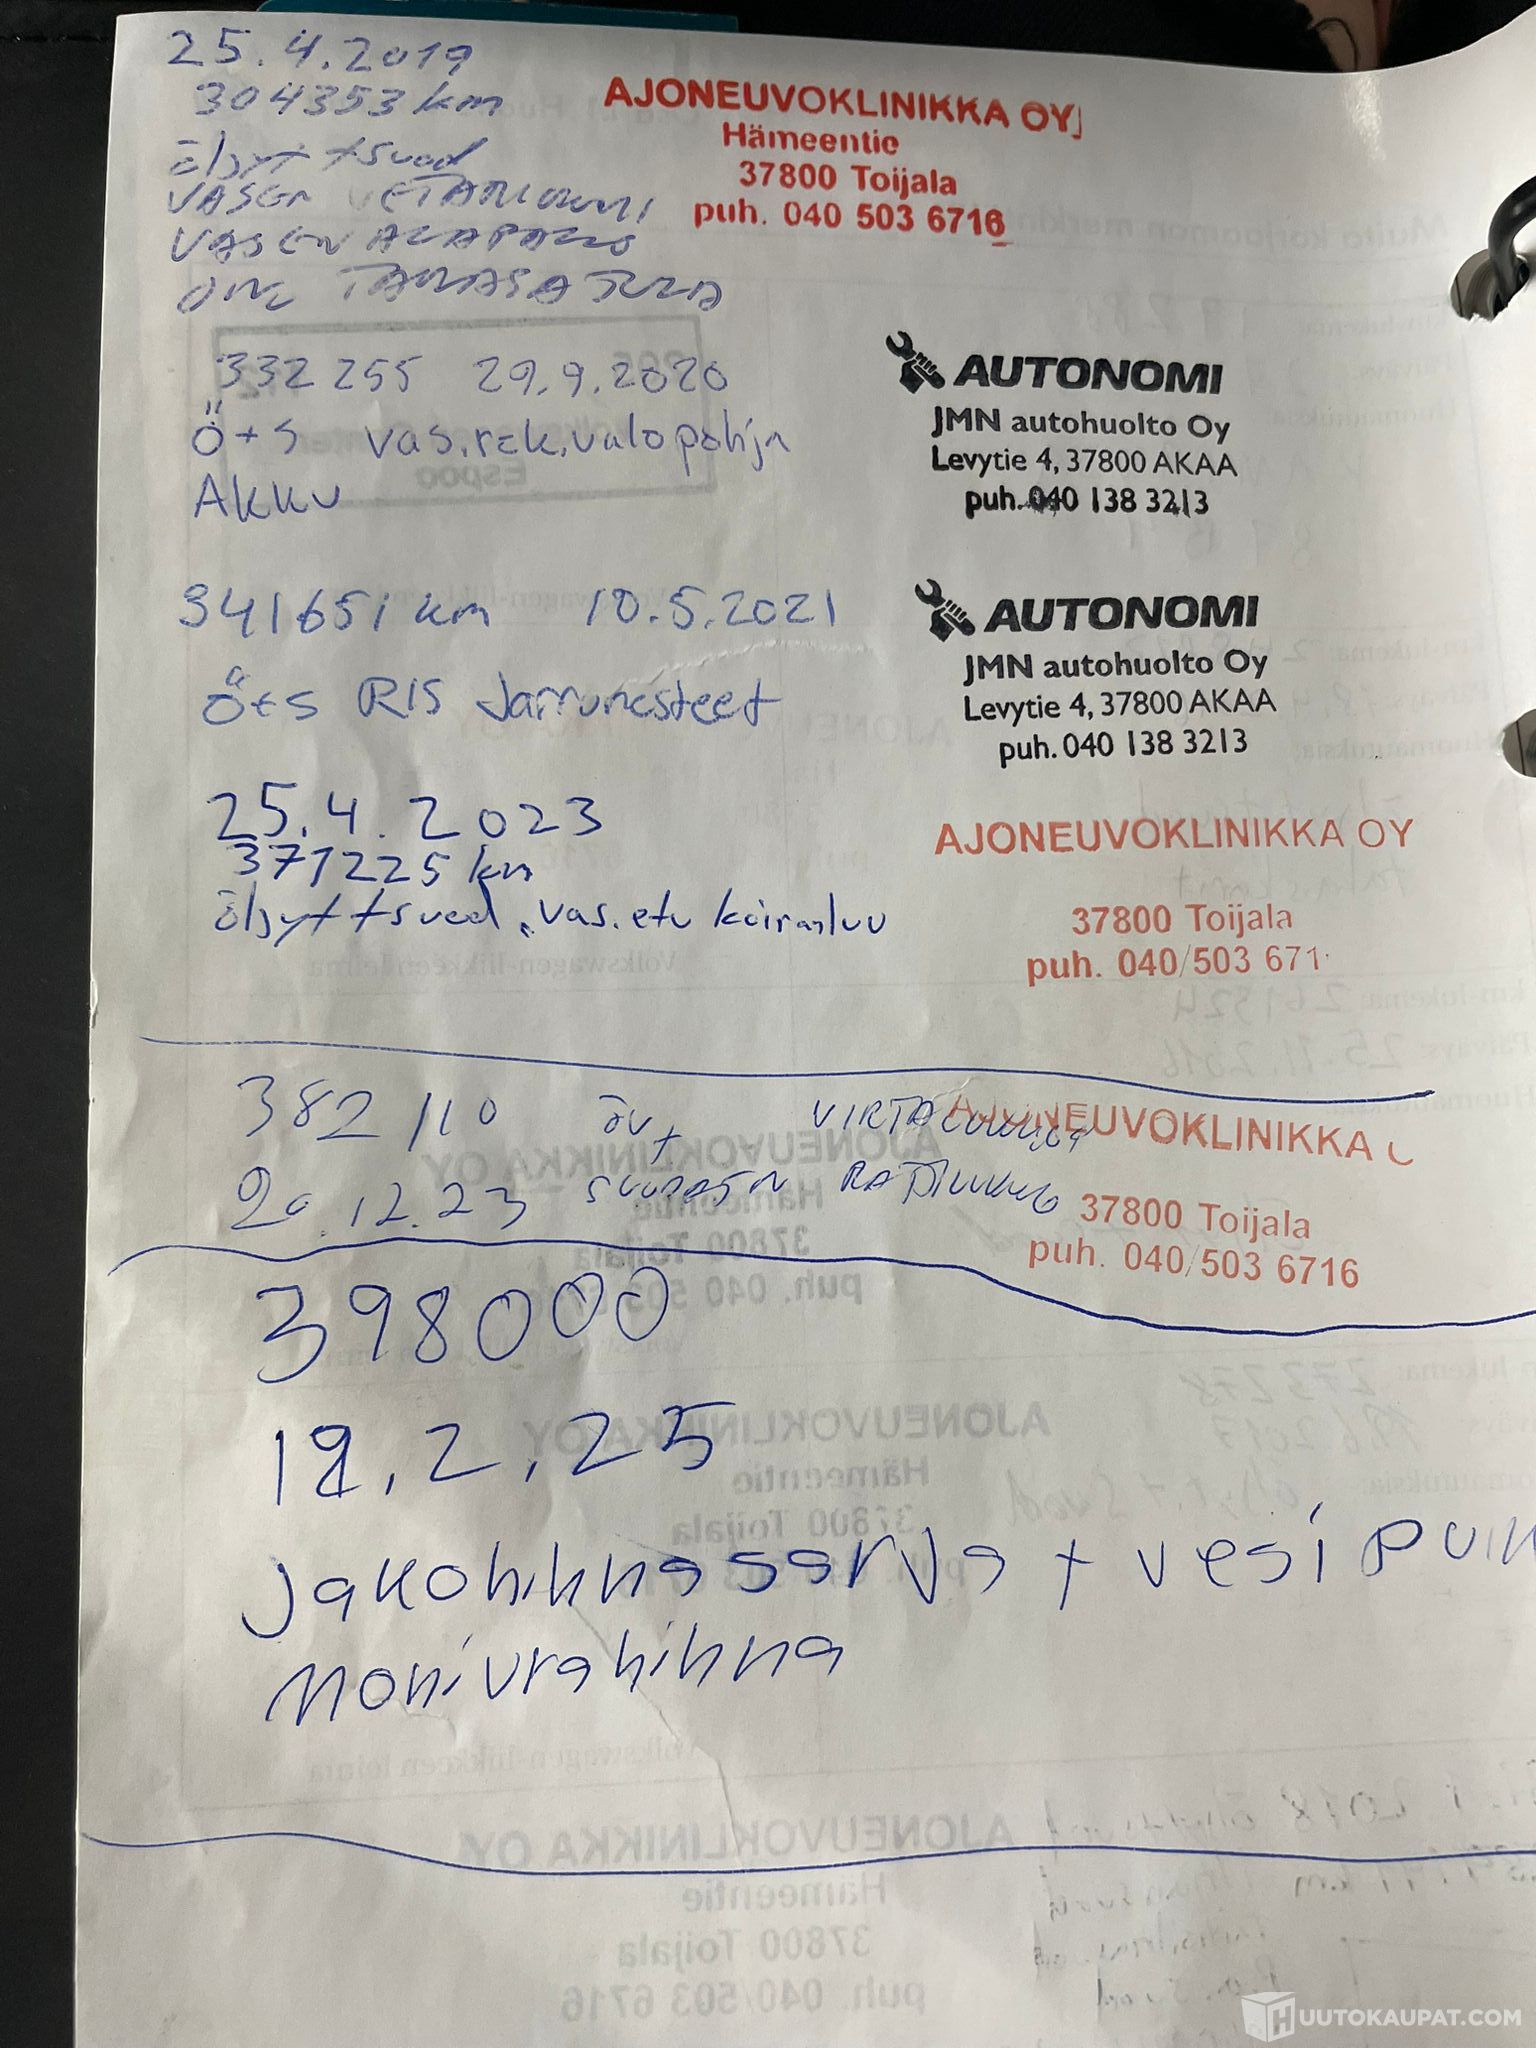 25.4.2019
304353 km
AJONEUVOKLINIKKA OY
Hämeentie
37800 Toijala
puh. 040 503 6716
öljyt + suod
VASEN VETARI
VASEN ALAPALLO
332 255 29.9.2020
Ö+S vas.rek.valo pohja
Akku
AUTONOMI
JMN autohuolto Oy
Levytie 4, 37800 AKAA
puh. 040 138 3213
341651 km 10.5.2021
Ö+S RIS Jarrunesteet
AUTONOMI
JMN autohuolto Oy
Levytie 4, 37800 AKAA
puh. 040 138 3213
25.4.2023
371225 km
öljyt + suod, vas. etu koiranluu
AJONEUVOKLINIKKA OY
37800 Toijala
puh. 040/503 671
382 110
20.12.23
AJONEUVOKLINIKKA
37800 Toijala
puh. 040/503 6716
398000
.2.25
Jakohihnasarja + vesi
Moniurahihna
HUUTOKAUPAT.COM